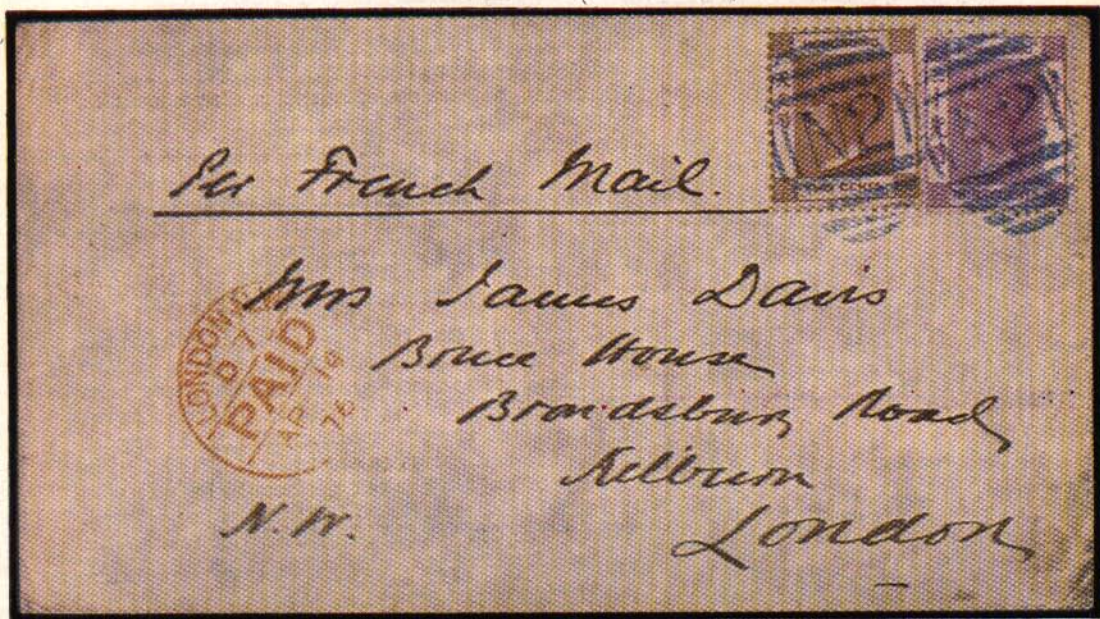 Per French Mail.
TWO CENTS
Mrs James Davis
Bruce House
Brondsbury Road
Kilburn
London
N.W.
LONDON
D 7
PAID
AP 19
76